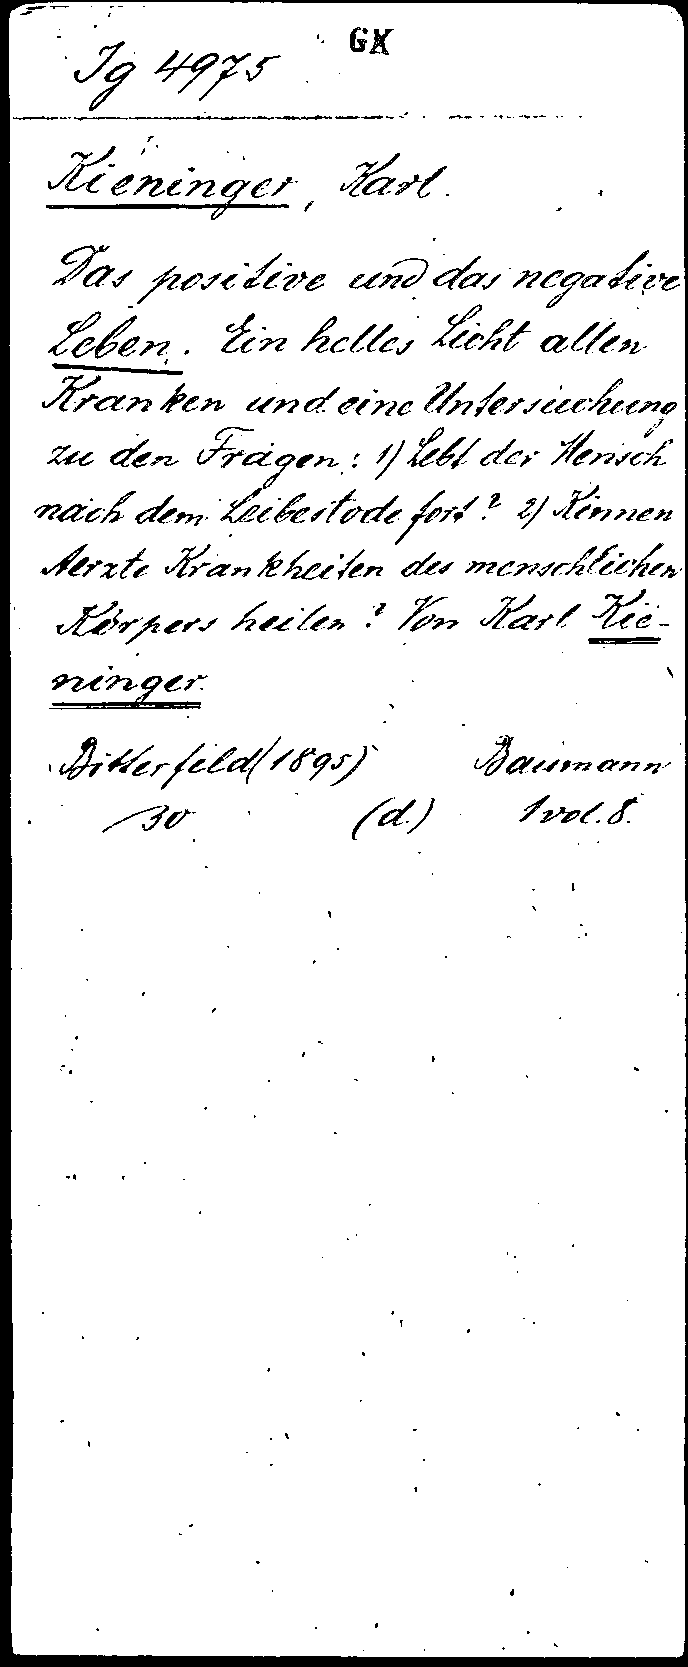 GX
Ig 4975
Kieninger, Karl.
Das positive und das negative
Leben. Ein helles Licht allen
Kranken und eine Untersuchung
zu den Fragen: 1) Lebt der Mensch
nach dem Leibestode fort? 2) Können
Aerzte Krankheiten des menschlichen
Körpers heilen? Von Karl Kie-
ninger.
Bitterfeld (1895) Baumann
30 (d.) 1 vol. 8.